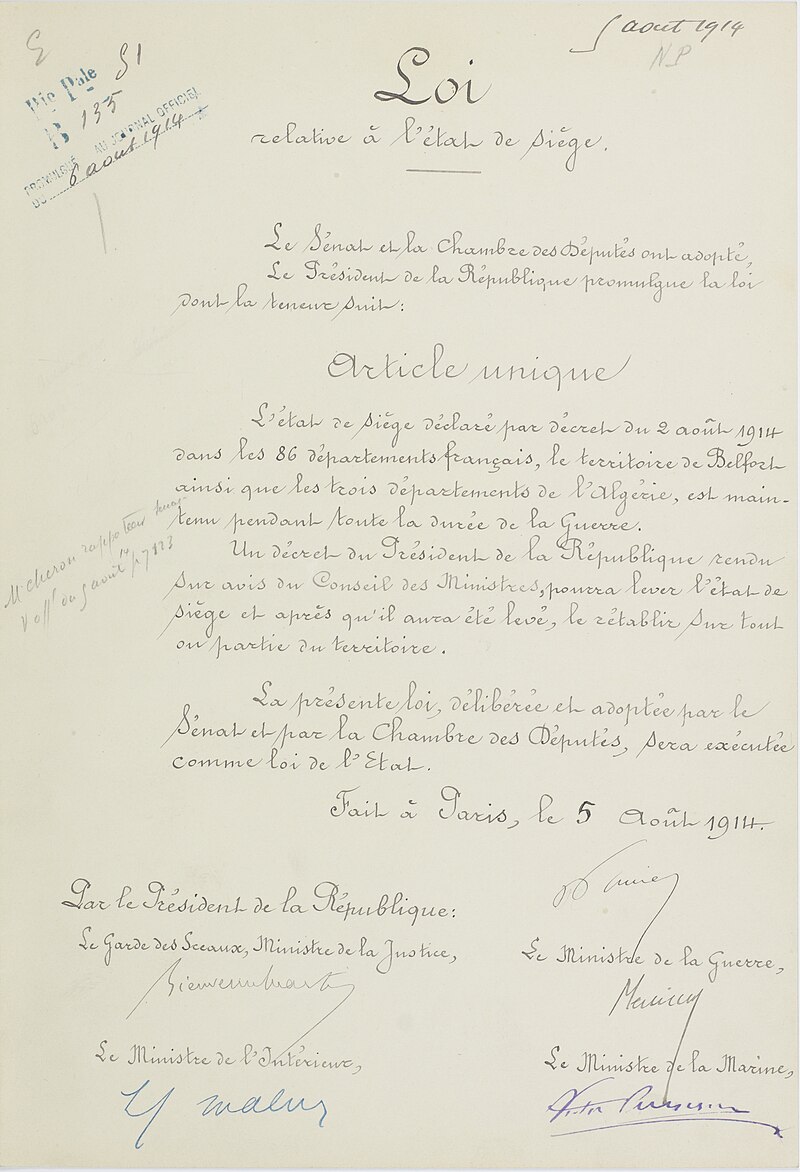 5 août 1914
N P
51
Bie Pale
B 135
PROMULGUÉ AU JOURNAL OFFICIEL
DU 6 août 1914
Loi
relative à l'état de siège.
Le Sénat et la Chambre des Députés ont adopté,
Le Président de la République promulgue la loi
dont la teneur suit:
Article unique
L'état de siège déclaré par décret du 2 août 1914
dans les 86 départements français, le territoire de Belfort
ainsi que les trois départements de l'Algérie, est main-
tenu pendant toute la durée de la Guerre.
Un décret du Président de la République rendu
sur avis du Conseil des Ministres, pourra lever l'état de
siège et après qu'il aura été levé, le rétablir sur tout
ou partie du territoire.
rapporteur
5 août
La présente loi, délibérée et adoptée par le
Sénat et par la Chambre des Députés, sera exécutée
comme loi de l'Etat.
Fait à Paris, le 5 Août 1914.
Par le Président de la République:
Le Garde des Sceaux, Ministre de la Justice,
Bienvenu Martin
Le Ministre de la Guerre,
Messimy
Le Ministre de l'Intérieur,
Malvy
Le Ministre de la Marine,